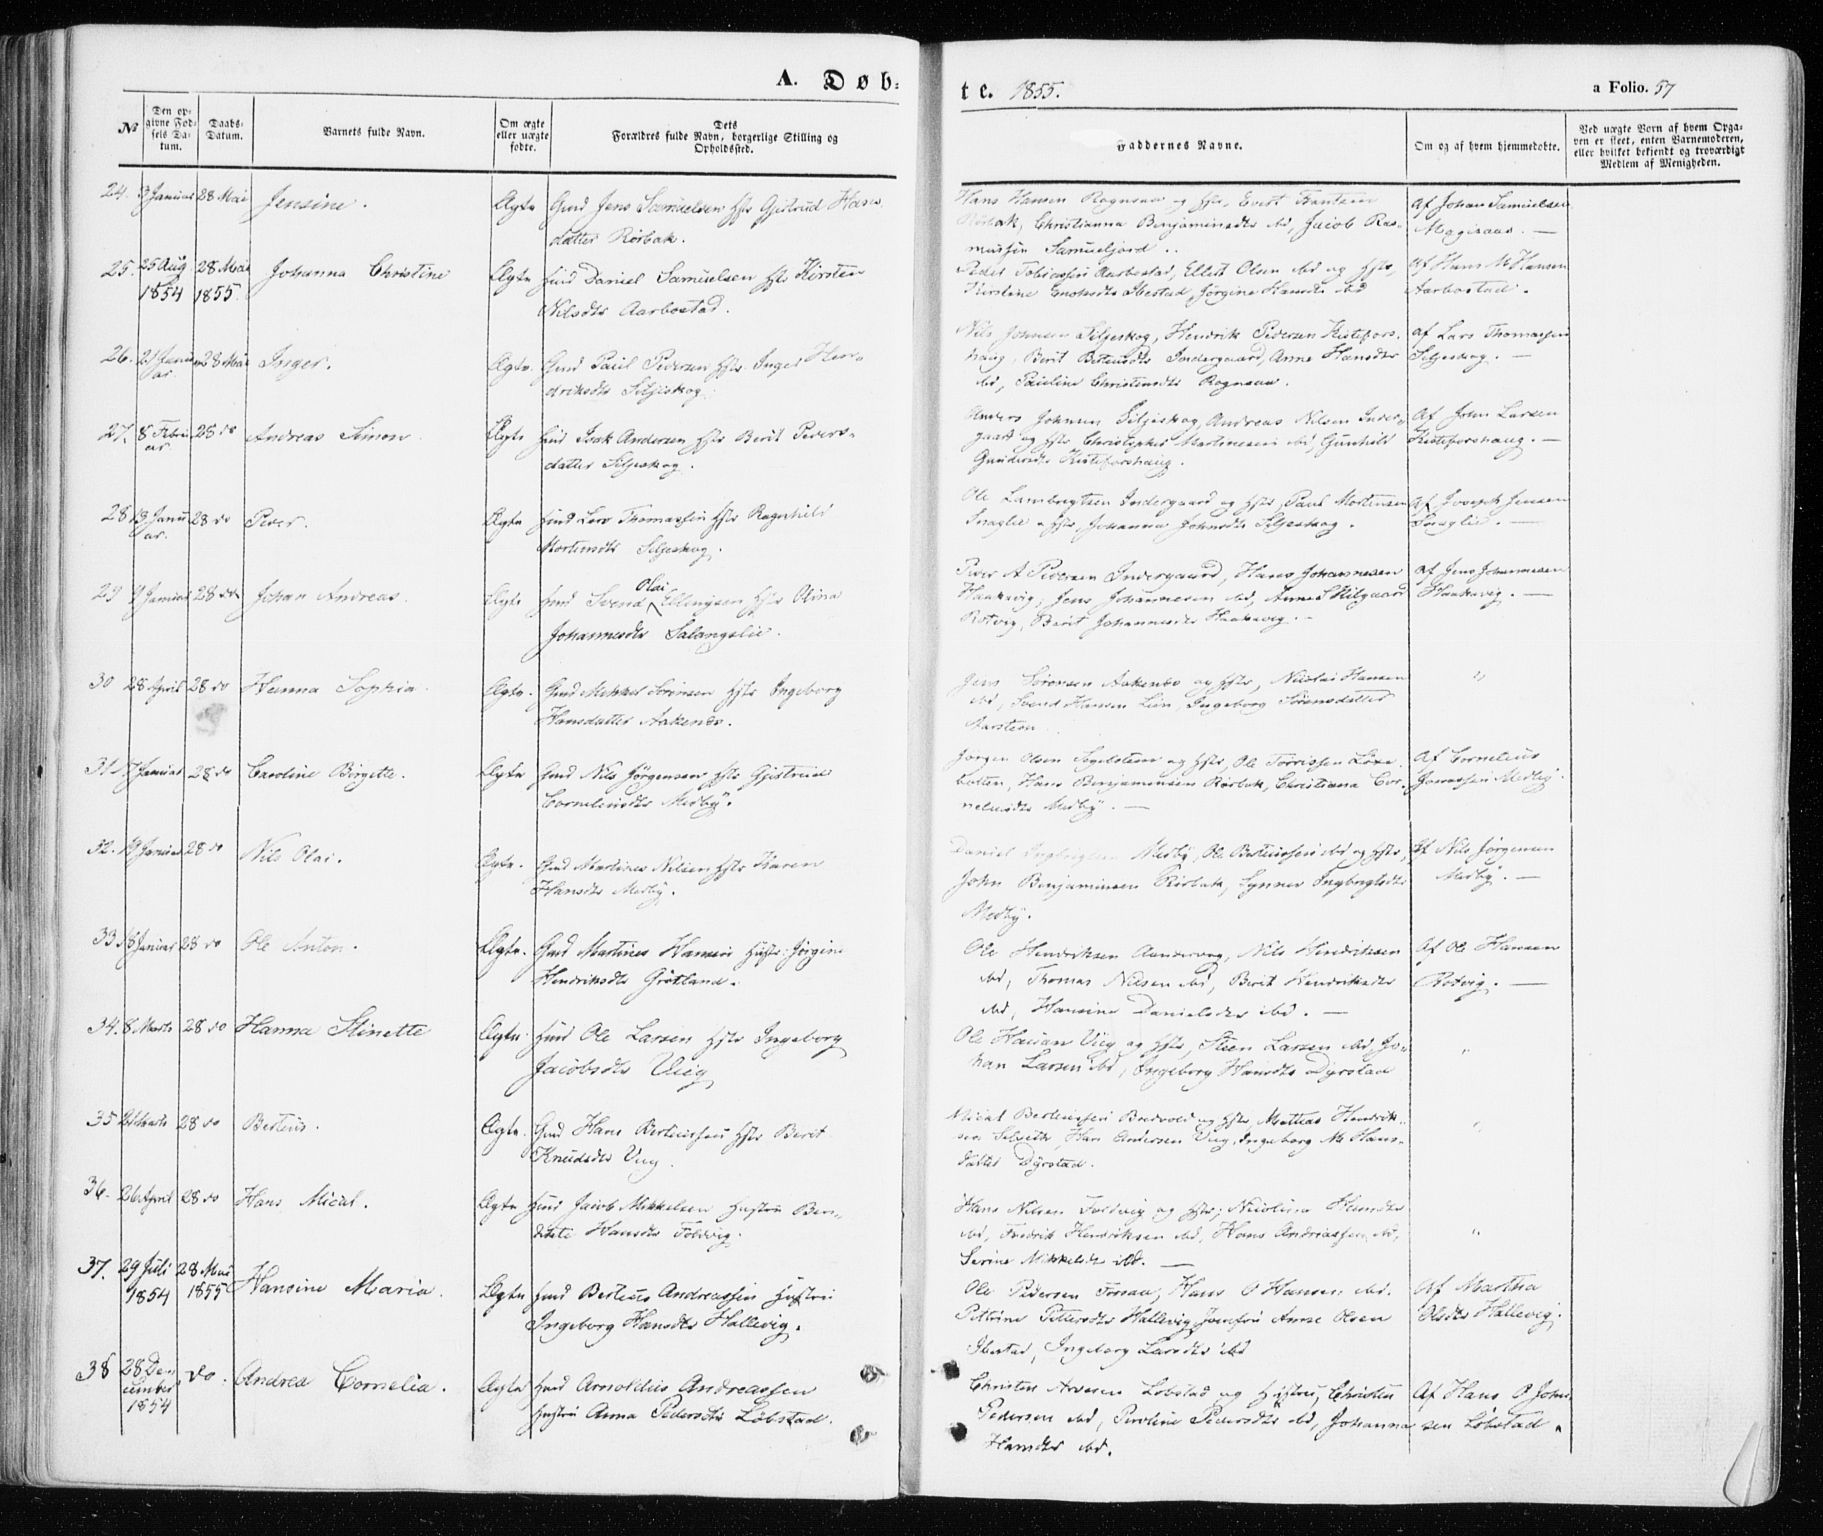 A. Døb:
te. 1855.
a Folio. 57
№
Den op-
givne Fød-
sels Da-
tum.
Daabs-
Datum.
Barnets fulde Navn.
Om ægte
eller uægte
fødte.
Dets
Forældres fulde Navn, borgerlige Stilling og
Opholdssted.
Faddernes Navne.
Om og af hvem hjemmedøbte.
Ved uægte Børn af hvem Opga-
ven er skeet, enten Barnemoderen,
eller hvilket bekjendt og troværdigt
Medlem af Menigheden.
24. 3 Januar 28 Mai Jensine. Ægte Gmd Jens Samuelsen Hstr Gjertrud Hans
datter Rørbak.
Hans Hansen Rognsaa og Hstr,
Rørbak, Christianna Benjaminsdtr ibd, Jacob Ras-
mussen
Af Johan Samuelsen
25. 25 Aug 1854 28 Mai 1855. Johanna Christine Ægte Hmd Daniel Samuelsen Hstr Kirsten
Nilsdtr Aarbostad.
Peder Tobiassen Aarbostad, Ellert Olsen ibd og Hstr,
Kirstine Enoksdtr Ibestad, Jørgine Hansdtr ibd
Af Hans M Hansen
Aarbostad.
26. 21 Janu-
ar. 28 Mai Inger. Ægte. Gmd Paul Pedersen Hstr Inger Hen-
driksdtr Siljeskog.
Nils Johnsen Siljeskog, Hendrik Pedersen Kistefors-
haug, Berit Berteusdtr Indergaard, Anne Hansdtr
ibd, Pauline Christensdtr Rognsaa.
af Lars Thomassen
Siljeskog. —
27. 8 Febru
ar. 28 do Andreas Simon. Ægte Hmd Isak Andersen Hstr Berit Peders-
datter Siljeskog.
Anders Johnsen Siljeskog, Andreas Nilsen Inder-
gaard og Hstr, Christopher Martinesen ibd, Gunhild
Gundersdtr Kisteforshaug.
Af John Larsen
Kisteforshaug. —
28 13 Janu
ar. 28 do Peder. Ægte Hmd Lars Thomassen Hstr Ragnhild
Mortensdtr Siljeskog.
Ole Lambregtsen Indergaard og Hstr, Paul Mortensen
Snaglie & Hstr, Johanna Johnsdtr Siljeskog.
Af Joseph Jensen
Snaglie. —
29 9 Januar 28 do Johan Andreas. Ægte Hmd Svend Olai Ellingsen Hstr Olina
Johannesdtr Salangslie.
Peder A Pedersen Indergaard, Hans Johannesen
Haakavig, Jens Johannesen ibd, Anne S Hilgaard
Rotvig, Berit Johannesdtr Haakavig. —
af Jens Johannesen
Haakavig. —
30 28 April 28 do Hanna Sophia. Ægte. Gmd Mikkel Sørensen Hstr Ingeborg
Hansdatter Aakenes.
Jens Sørensen Aakenes og Hstr, Nicolai Hansen
ibd, Svend Hansen Lien, Ingeborg Sørensdatter
Aarsteen
"
31 17 Januar 28 do Caroline Birgitte. Ægte Gmd Nils Jørgensen Hstr Gjertrud
Corneliusdtr Medby.
Jørgen Olsen Segelsteen og Hstr, Ole Torrissen
Hans Benjaminsen Rørbak, Christiana Cor-
neliusdtr Medby. —
Af Cornelius
Jonassen Medby.
32. 19 Januar 28 do Nils Olai. Ægte. Gmd Martines Nilsen Hstr Karen
Hansdtr Medby.
Daniel Ingbrigtsen Medby, Ole Berteussen ibd og Hstr,
John Benjaminsen Rørbak, Synner Ingbrigtsdtr
Medby.
Af Nils Jørgensen
Medby. —
33 18 Januar 28 do Ole Anton. Ægte. Gmd Martines Hansen Hustr: Jørgine
Hendriksdtr Grøtland.
Ole Hendriksen Nils Hendriksen
ibd, Thomas Nilsen ibd, Berit Hendriksdtr
ibd, Hansine Danielsdtr ibd. —
Af Ole Hansen
Rotvig. —
34. 8 Marts 28 do Hanna Stinette Ægte. Hmd Ole Larsen Hstr Ingeborg
Jacobsdtr Vieg
Ole Vieg og Hstr, Steen Larsen ibd, Jo-
han Larsen ibd, Ingeborg Hansdtr Dyrstad
"
35 28 do Berteus. Ægte. Gmd Hans Berteussen Hstr Berit
Knudsdtr Vieg.
Mical Berteussen Bredvold og Hstr, Mathias Hendrik-
sen Hans Andersen Vieg, Ingeborg M Hans-
datter Dyrstad.
"
36. 26 April 28 do Hans Mical. Ægte Hmd Jacob Mikkelsen Hustru Ben-
dikte Hansdtr Foldvig.
Hans Nilsen Foldvig og Hstr, Nicolina Hansdtr
ibd, Fredrik Hendriksen ibd, Hans Andreassen ibd,
Serine Mikkelsdtr ibd. —
"
37. 29 Juli 1854 28 Mai 1855 Hansine Maria. Ægte Hmd Berteus Andreassen Hustru
Ingeborg Hansdtr Hallevig.
Ole Pedersen Forsaa, Hans O Hansen ibd.
Petrine Pettersdtr Hallevig, Jomfru Anne Olsen
Ibestad, Ingeborg Larsdtr ibd
Af Martha
Olsdtr Hallevig.
38 28 De-
cember
1854 do. Andrea Cornelia. Ægte Hmd Arnoldus Andreassen
Hustru Anna Pedersdtr Løbstad.
Christen Arnesen Løbstad og Hustru, Christen
Pedersen ibd, Peroline Pedersdtr ibd, Johanna
Hansdtr ibd.
Af Hans P John
sen Løbstad.